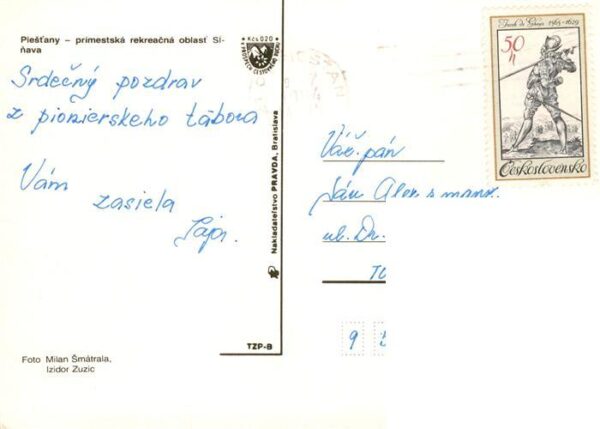 Piešťany – prímestská rekreačná oblasť Sĺ-
ňava
Srdečný pozdrav
z pionierskeho tábora
Vám
zasiela
Kčs 020
Nakladateľstvo PRAVDA, Bratislava
TZP-B
Foto Milan Šmátrala,
Izidor Zuzic
Jacob de Gheyn 1565-1629
50
h
Československo
Váž. pán
Ján
ul. Dr.
9